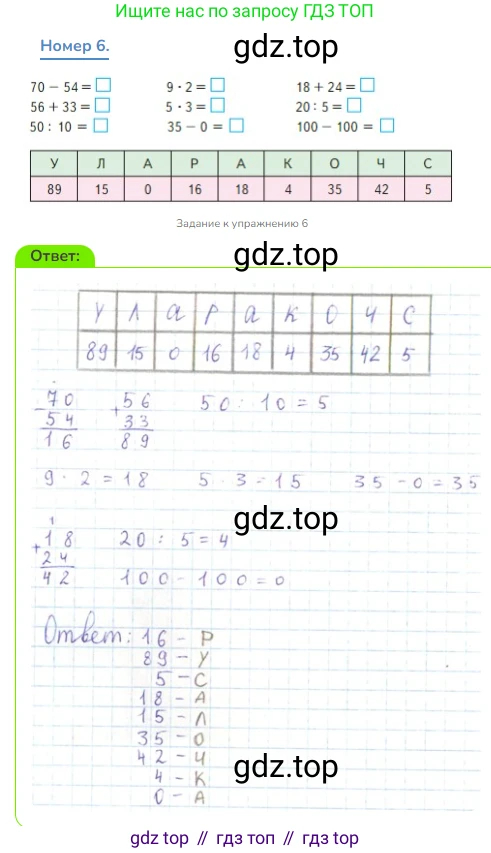 Ищите нас по запросу ГДЗ ТОП
Номер 6.
gdz.top
70 − 54 = □ 9 · 2 = □ 18 + 24 = □
56 + 33 = □ 5 · 3 = □ 20 : 5 = □
50 : 10 = □ 35 − 0 = □ 100 − 100 = □
У Л А Р А К О Ч С
89 15 0 16 18 4 35 42 5
Задание к упражнению 6
Ответ:
gdz.top
У Л а Р а К О Ч С
89 15 0 16 18 4 35 42 5
70 56 50 : 10 = 5
− 54 + 33
16 89
9 · 2 = 18 5 · 3 = 15 35 − 0 = 35
gdz.top
1
18 20 : 5 = 4
+ 24
42 100 − 100 = 0
Ответ: 16 − Р
89 − У
5 − С
18 − А
15 − Л
35 − О
42 − Ч
4 − К
0 − А
gdz.top
gdz top // гдз топ // gdz.top